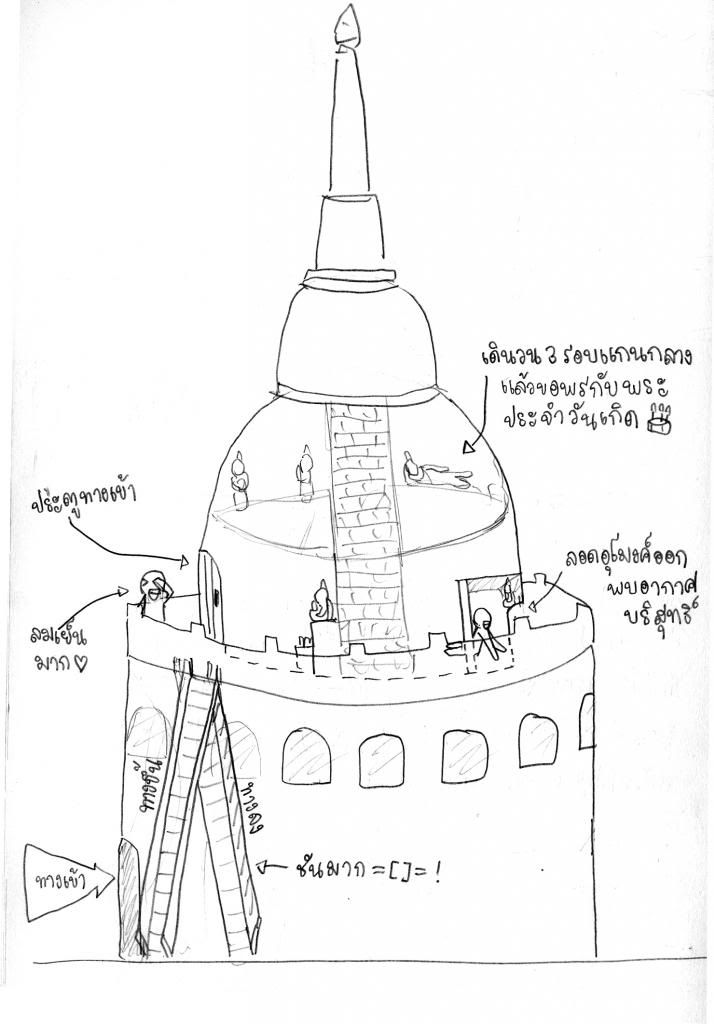 เดินวน 3 รอบแกนกลาง
แล้วขอพรกับพระ
ประจำวันเกิด
ประตูทางเข้า
ลอดอุโมงค์ออก
พบอากาศ
บริสุทธิ์
ลมเย็น
มาก♡
ทางขึ้น
ทางลง
ชันมาก =[]= !
ทางเข้า